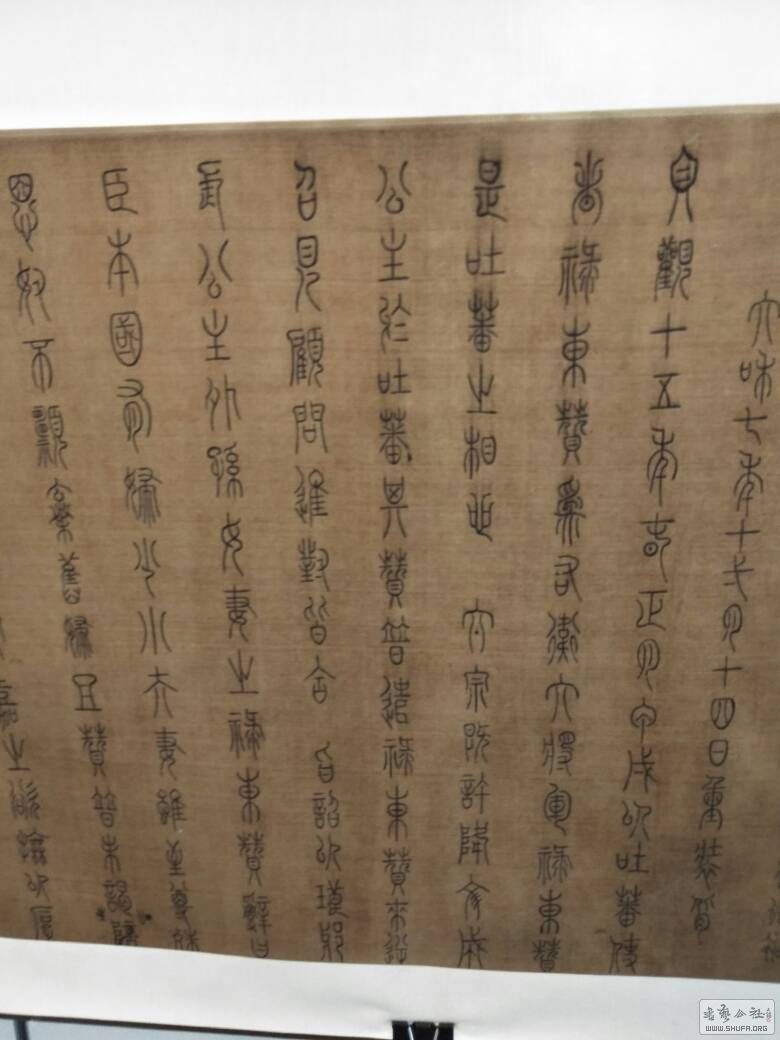 太和七年十一月十四日重裝背
貞觀十五年春正月甲戌以吐蕃使
者祿東贊為右衛大將軍祿東贊
是吐蕃之相也 太宗既許降文成
公主於吐蕃其贊普遣祿東贊來逆
召見顧問進對皆合 旨詔以瑯邪
長公主外孫女妻之祿東贊辭曰
臣本國有婦少小夫妻雖至尊殊
恩奴不願棄舊婦且贊普未謁
嘉之欲撫以厚
書藝公社
WWW.SHUFA.ORG